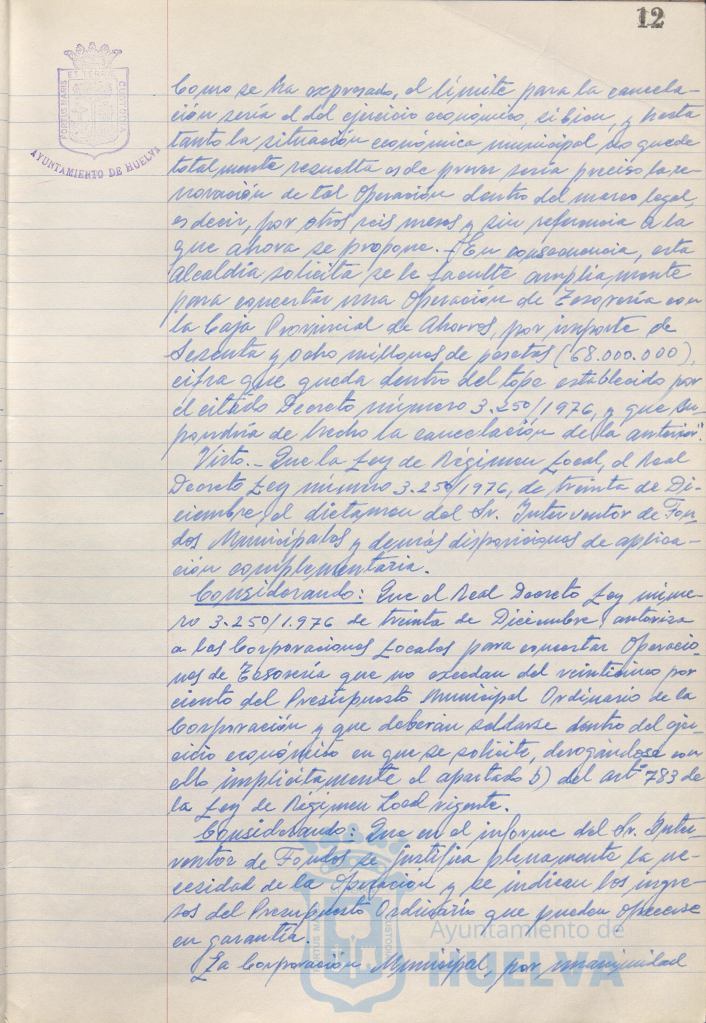 12
PORTUS MARIS ET TERRAE CUSTODIA
AYUNTAMIENTO DE HUELVA
Como se ha expresado, el límite para la cancela-
ción sería el del ejercicio económico, si bien, y hasta
tanto la situación económica municipal no quede
totalmente resuelta es de prever sería preciso la re-
novación de tal Operación dentro del marco legal,
es decir, por otros seis meses y sin referencia a la
que ahora se propone.- En consecuencia, esta
Alcaldía solicita se le faculte ampliamente
para concertar una Operación de Tesorería con
la Caja Provincial de Ahorros, por importe de
Sesenta y ocho millones de pesetas (68.000.000),
cifra que queda dentro del tope establecido por
el citado Decreto número 3.250/1976, y que su-
pondría de hecho la cancelación de la anterior".
Visto.- Que la Ley de Régimen Local, el Real
Decreto Ley número 3.250/1976, de treinta de Di-
ciembre, el dictamen del Sr. Interventor de Fon-
dos Municipales y demás disposiciones de aplica-
ción complementaria.
Considerando: Que el Real Decreto Ley núme-
ro 3.250/1.976 de treinta de Diciembre, autoriza
a las Corporaciones Locales para concertar Operacio-
nes de Tesorería que no excedan del veinticinco por
ciento del Presupuesto Municipal Ordinario de la
Corporación y que deberán saldarse dentro del ejer-
cicio económico en que se solicite, derogándose con
ello implícitamente el apartado b) del artº 783 de
la Ley de Régimen Local vigente.
Considerando: Que en el informe del Sr. Inter-
ventor de Fondos se justifica plenamente la ne-
cesidad de la Operación y se indican los ingre-
sos del Presupuesto Ordinario que pueden ofrecerse
en garantía.
La Corporación Municipal, por unanimidad
Ayuntamiento de
HUELVA